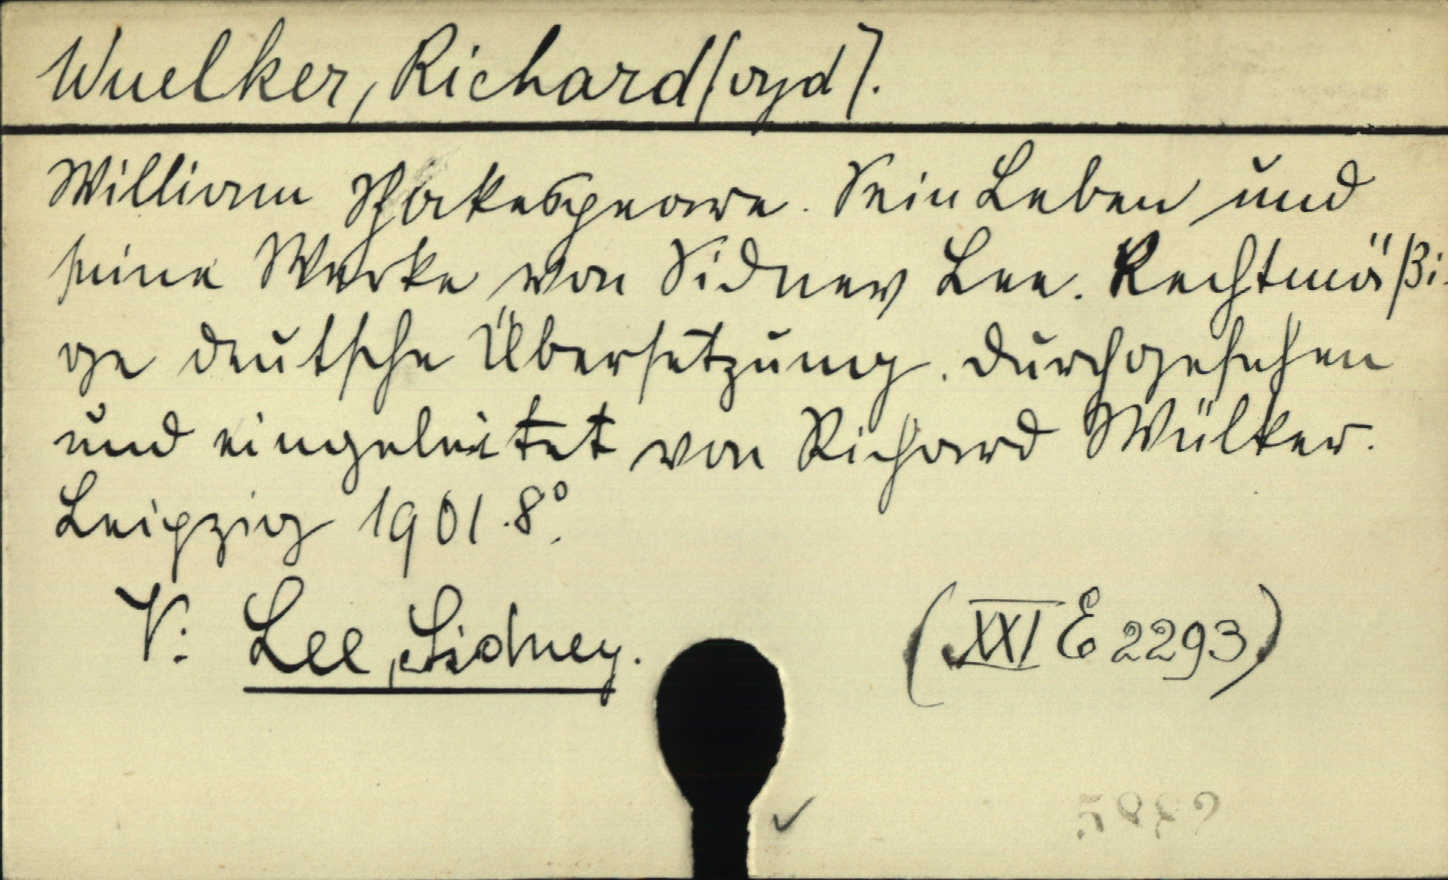 Wuelker, Richard [oyd].
William Shakespeare. Sein Leben und
seine Werke von Sidney Lee. Rechtmäßi-
ge deutsche Übersetzung. Durchgesehen
und eingeleitet von Richard Wülker.
Leipzig 1901. 8°.
V: Lee, Sidney.
(XXI E 2293)